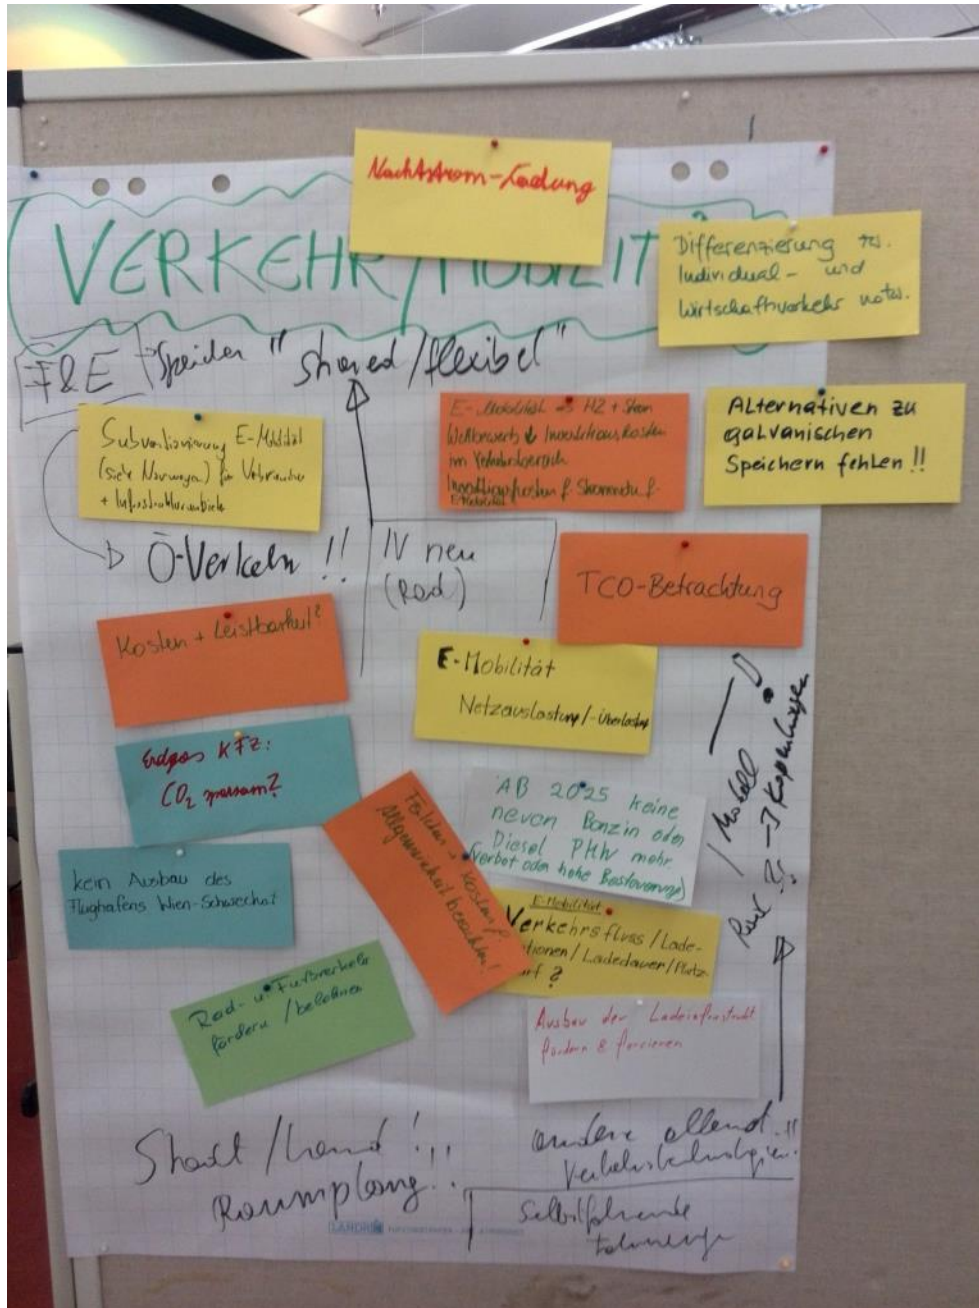 Nachtstrom-Ladung
VERKEHR/MOBILIT
Differenzierung zw.
Individual- und
Wirtschaftsverkehr notw.
F&E
Speicher "shared/flexibel"
Subventionierung E-Mobilität
(siehe Norwegen) für Verbraucher
+
E-Mobilität => H2 + Strom
Wettbewerb ↓
im Verkehrsbereich
E-Mobilität
ALternativen zu
galvanischen
Speichern fehlen!!
Ö-Verkehr !!
IV neu
(Rad)
TCO-Betrachtung
Kosten + Leistbarkeit?
E-Mobilität
Netzauslastung/-überlastung
Erdgas KFZ:
CO2 sparsam?
AB 2025 keine
neuen Benzin oder
Diesel PKW mehr
(Verbot oder hohe Besteuerung)
kosten f.
Allgemeinheit beachten!
kein Ausbau des
Flughafens Wien-Schwechat
E-Mobilität
Verkehrsfluss/Lade-
tionen/Ladedauer/Platz-
arf?
Rad- u. Fußverkehr
fördern/belohnen
Ausbau der Ladeinfrastrukt
fördern & forcieren
/ Modell
Kopenhagen
Stadt/Land!
Raumplang!!
andere
Verkehrstechnologien!!
Selbstfahrende